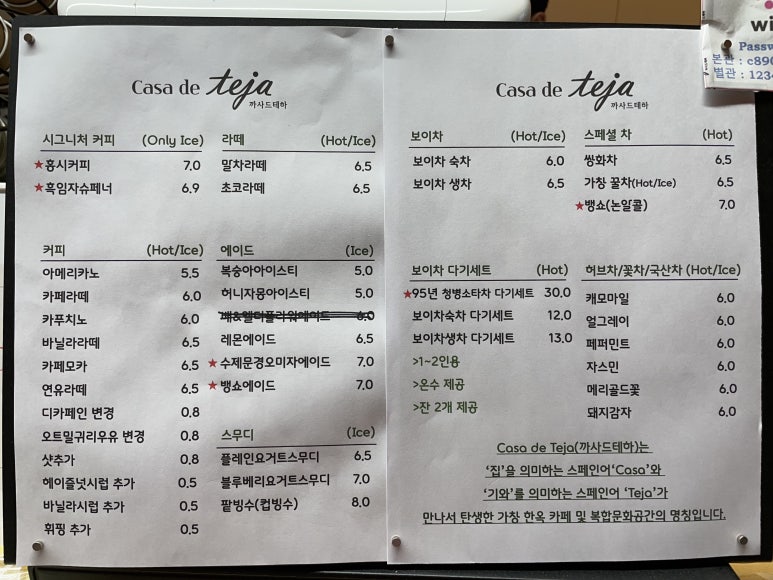 Casa de teja
까사드테하
시그니처 커피 (Only Ice)
★홍시커피 7.0
★흑임자슈페너 6.9
커피 (Hot/Ice)
아메리카노 5.5
카페라떼 6.0
카푸치노 6.0
바닐라라떼 6.5
카페모카 6.5
연유라떼 6.5
디카페인 변경 0.8
오트밀귀리우유 변경 0.8
샷추가 0.8
헤이즐넛시럽 추가 0.5
바닐라시럽 추가 0.5
휘핑 추가 0.5
라떼 (Hot/Ice)
말차라떼 6.5
초코라떼 6.5
에이드 (Ice)
복숭아아이스티 5.0
허니자몽아이스티 5.0
배&엘더플라워에이드 6.0
레몬에이드 6.5
★수제문경오미자에이드 7.0
★뱅쇼에이드 7.0
스무디 (Ice)
플레인요거트스무디 6.5
블루베리요거트스무디 7.0
팥빙수(컵빙수) 8.0
Casa de teja
까사드테하
보이차 (Hot/Ice)
보이차 숙차 6.0
보이차 생차 6.5
스페셜 차 (Hot)
쌍화차 6.5
가칭 꿀차(Hot/Ice) 6.5
★뱅쇼(논알콜) 7.0
보이차 다기세트 (Hot)
★95년 청병소타차 다기세트 30.0
보이차숙차 다기세트 12.0
보이차생차 다기세트 13.0
>1~2인용
>온수 제공
>잔 2개 제공
허브차/꽃차/국산차 (Hot/Ice)
캐모마일 6.0
얼그레이 6.0
페퍼민트 6.0
자스민 6.0
메리골드꽃 6.0
돼지감자 6.0
Casa de Teja(까사드테하)는
‘집’을 의미하는 스페인어‘Casa’와
‘기와’를 의미하는 스페인어 ‘Teja’가
만나서 탄생한 가칭 한옥 카페 및 복합문화공간의 명칭입니다.
wi
Passw
본관 : c890
별관 : 1234